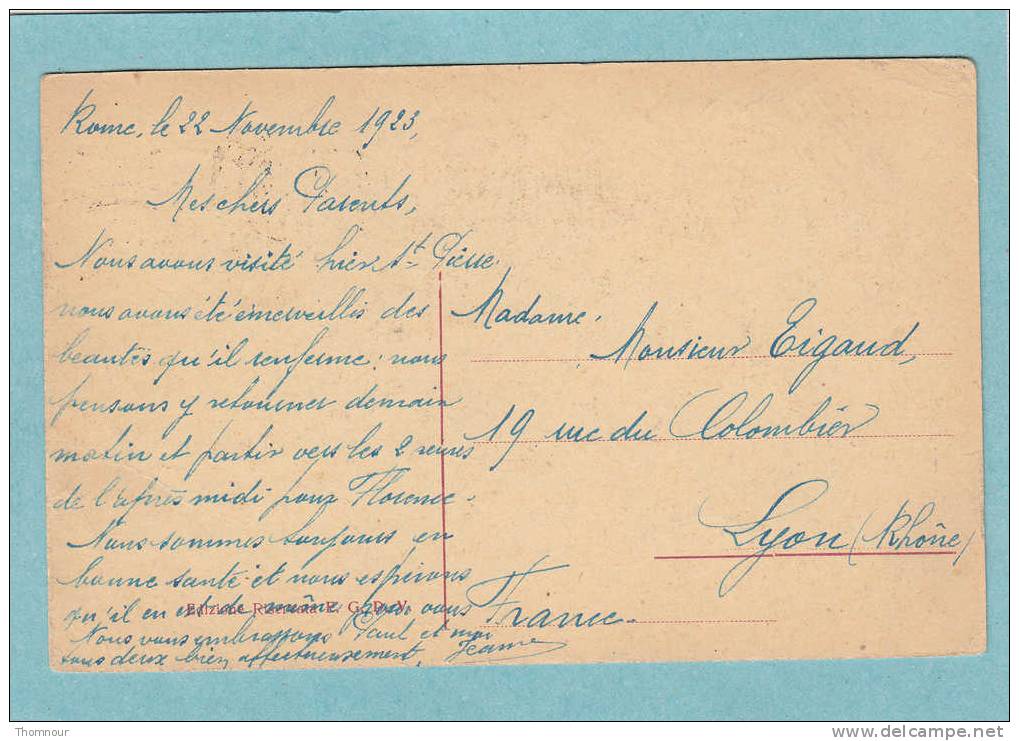 Rome, le 22 Novembre 1923,
Mes chers Parents,
Nous avons visité hier St Pierre
nous avons été émerveillés des
beautés qu'il renferme: nous
pensons y retourner demain
matin et partir vers les 2 heures
de l'après midi pour Florence.
Nous sommes toujours en
bonne santé et nous espérons
qu'il en est de même pour vous
Nous vous embrassons Paul et moi
tous deux bien affectueusement, Jeanne
Edizione Riservata P. G. D. V.
Madame,
Monsieur Eigaud,
19 rue du Colombier
Lyon (Rhône)
France.
Thomnour
delcampe.net